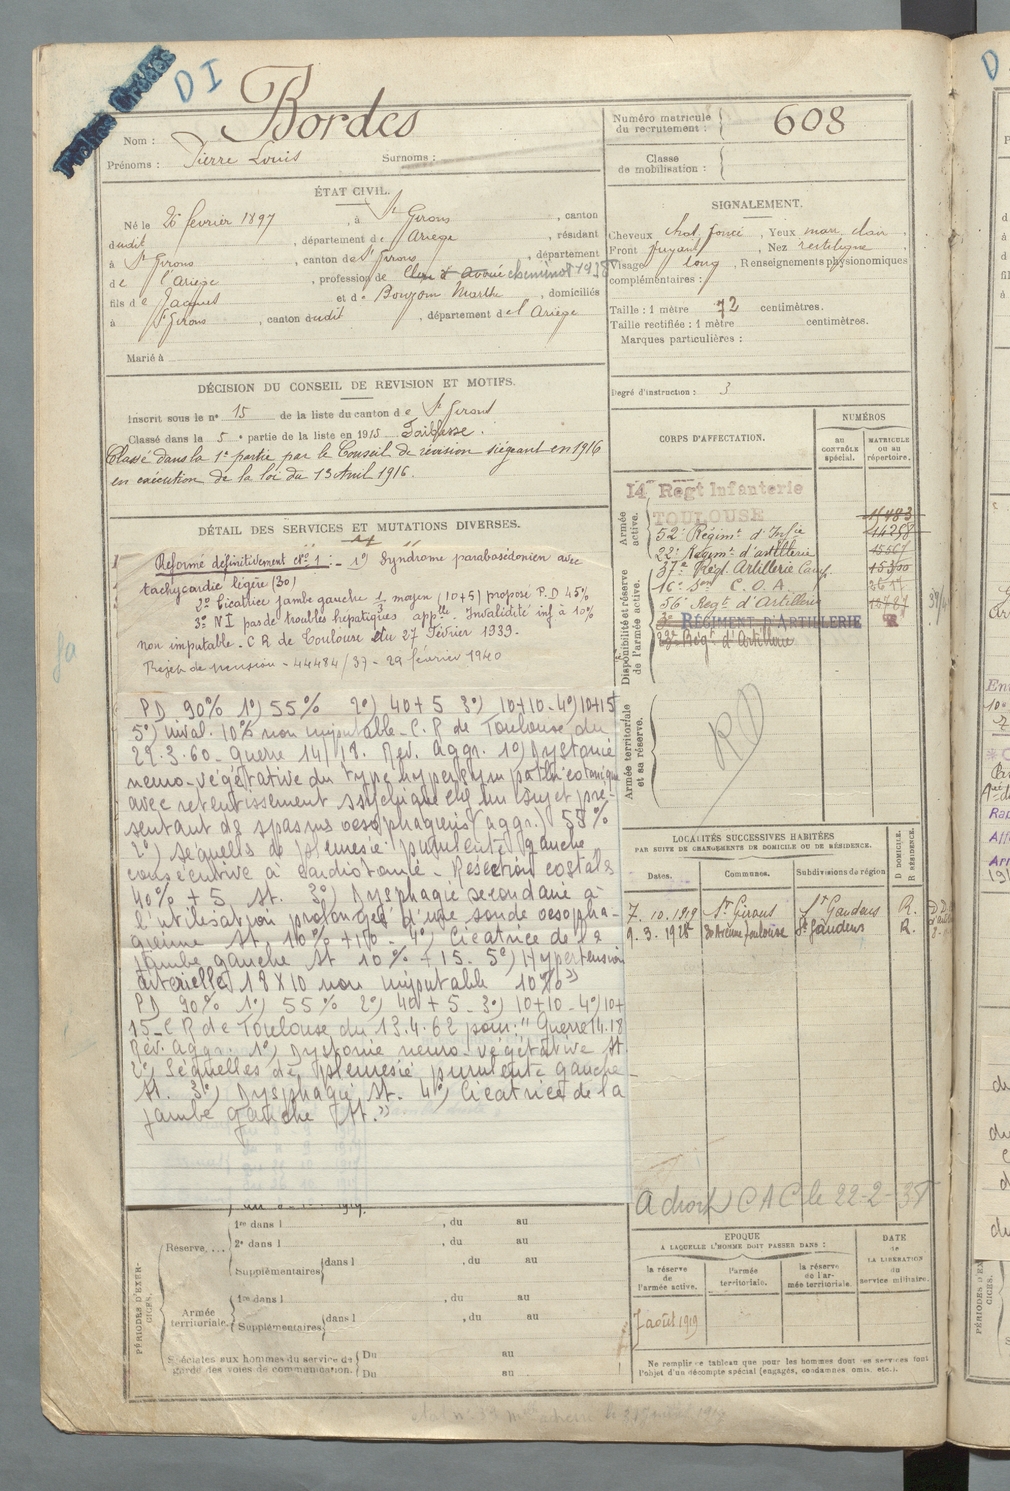 D I
Bordes
Nom :
Prénoms : Pierre Louis Surnoms :
Numéro matricule du recrutement : 608
Classe de mobilisation :
ÉTAT CIVIL.
Né le 26 février 1897, à St Girons, canton
dudit, département de Ariège, résidant
à St Girons, canton de St Girons, département
de l'Ariège, profession de Clerc d'avoué cheminot 1938
fils de Jacques et de Bouzom Marthe, domiciliés
à St Girons, canton dudit, département de l'Ariège
Marié à
SIGNALEMENT.
Cheveux chat. foncé, Yeux mar. clair,
Front fuyant, Nez rectiligne,
Visage long, Renseignements physionomiques
complémentaires :
Taille : 1 mètre 72 centimètres.
Taille rectifiée : 1 mètre centimètres.
Marques particulières :
Degré d'instruction : 3
DÉCISION DU CONSEIL DE REVISION ET MOTIFS.
Inscrit sous le n° 15 de la liste du canton de St Girons
Classé dans la 5e partie de la liste en 1915 Faiblesse.
Classé dans la 1e partie par le Conseil de révision siégeant en 1916
en exécution de la loi du 13 Avril 1916.
DÉTAIL DES SERVICES ET MUTATIONS DIVERSES.
Réformé définitivement N° 1 : - 1°) Syndrome parabasédonien avec
tachycardie légère (30)
2° Cicatrice jambe gauche 1/3 moyen (10+5) proposé P.D 45%
3° N I pas de troubles hépatiques appts. Invalidité inf à 10%
non imputable. C R de Toulouse du 27 Février 1939.
Projet de pension - 44484/37 - 29 février 1940
PD 90% 1°) 55% 2°) 40+5 3°) 10+10 - 4°) 10+15
5°) inval. 10% non imputable - C. R de Toulouse du
29.3.60. Guerre 14/18. Rev. Aggr. 1°) Dystonie
neuro-végétative du type hypersympathicotonique
avec retentissement psychique chez un sujet pré-
sentant des spasmes oesophagiens (aggr.) 55%
2°) séquelles de pleurésie purulente gauche
consécutive à
40% + 5 st. 3°) Dysphagie secondaire à
l'utilisation prolongée d'une sonde oesopha-
gienne st. 10% + 10 - 4°) Cicatrice de la
jambe gauche st 10% + 15. 5°) Hypertension
artérielle 18X10 non imputable 10% "
PD 90% 1°) 55% 2°) 40 + 5 - 3°) 10+10 - 4°) 10+
15 - C R de Toulouse du 13.4.62 pour : " Guerre 14.18
Rev. Aggr. 1°) Dystonie neuro-végétative st.
2°) séquelles de pleurésie purulente gauche
st. 3°) Dysphagie st. 4°) Cicatrice de la
jambe gauche st. "
CORPS D'AFFECTATION.
NUMÉROS
au CONTRÔLE spécial.
MATRICULE OU AU répertoire.
Armée active.
14e Regt Infanterie
TOULOUSE 15483
52e Régimt d'Infie 14258
22e Régimt d'artillerie 15567
Disponibilité et réserve de l'armée active.
37e Régt Artillerie Camp. 15300
16e Son C.O.A.
56e Regt d'Artillerie
3e RÉGIMENT D'ARTILLERIE R
Regt d'Artillerie
Armée territoriale et sa réserve.
LOCALITÉS SUCCESSIVES HABITÉES
PAR SUITE DE CHANGEMENTS DE DOMICILE OU DE RÉSIDENCE.
Dates. Communes. Subdivisions de région D DOMICILE. R RÉSIDENCE.
7.10.1919 St Girons St Gaudens R.
9.3.1928 Avenue Toulouse St Gaudens R.
A droit C A C le 22-2-38
PÉRIODES D'EXERCICES.
Réserve, ...
1re dans l , du au
2e dans l , du au
Supplémentaires dans l , du au
Armée territoriale.
1re dans l , du au
Supplémentaires dans l , du au
Spéciales aux hommes du service de garde des voies de communication.
Du au
Du au
EPOQUE
A LAQUELLE L'HOMME DOIT PASSER DANS :
la réserve de l'armée active.
l'armée territoriale.
la réserve de l'armée territoriale.
DATE de LA LIBÉRATION du service militaire.
7 août 1919
Ne remplir ce tableau que pour les hommes dont les services font
l'objet d'un décompte spécial (engagés, condamnés, omis, etc.).